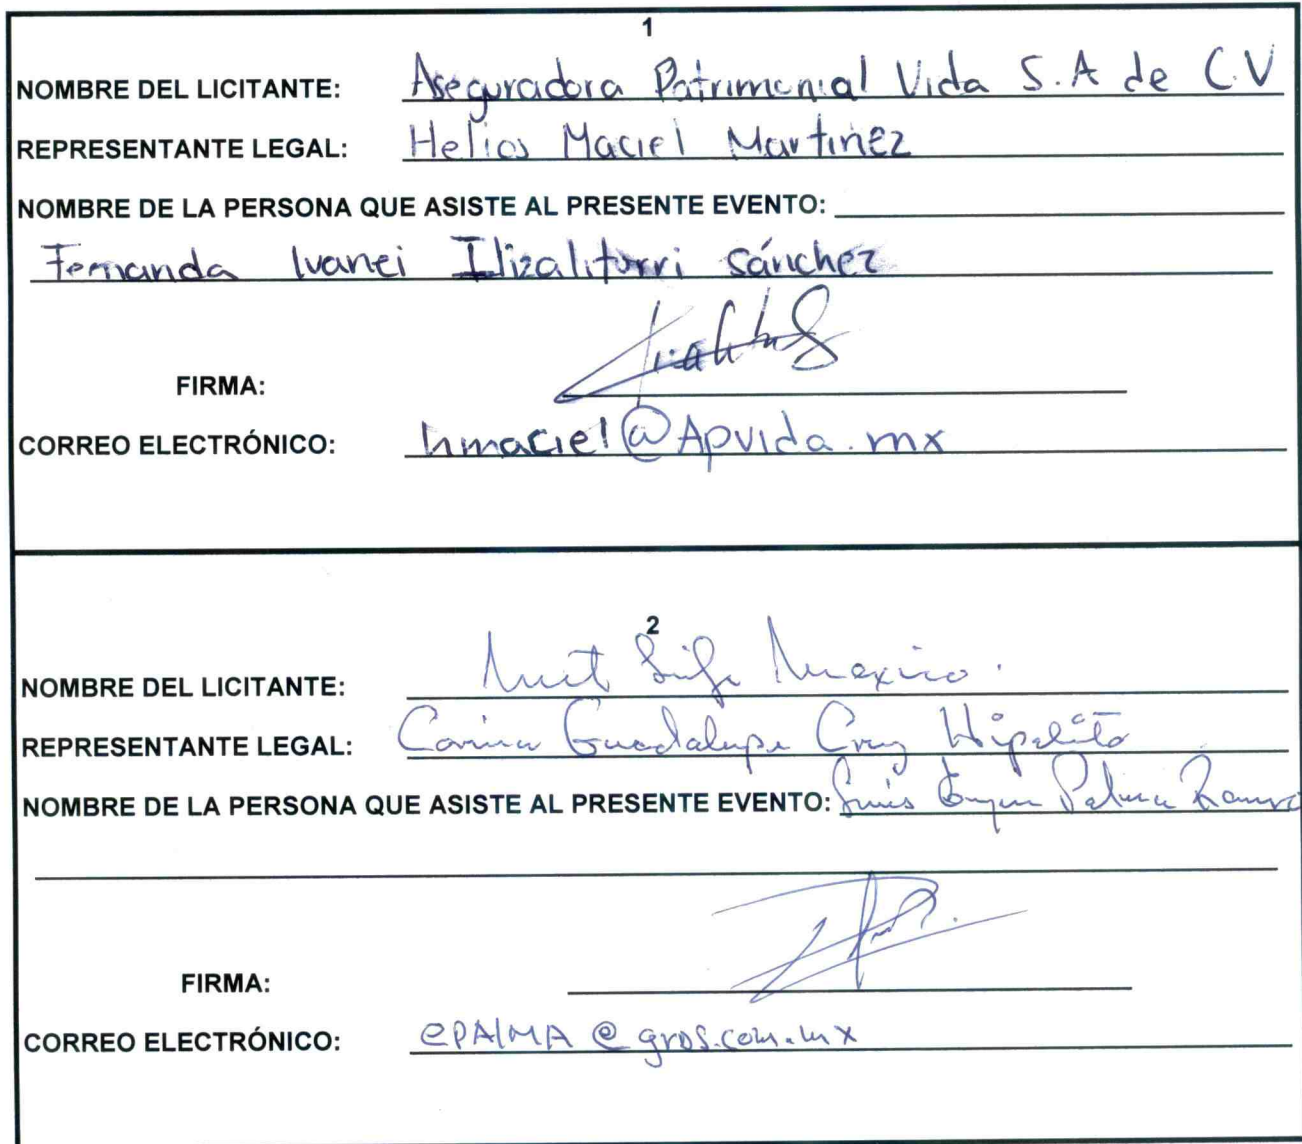 1
NOMBRE DEL LICITANTE: Aseguradora Patrimonial Vida S.A de C.V
REPRESENTANTE LEGAL: Helios Maciel Martinez
NOMBRE DE LA PERSONA QUE ASISTE AL PRESENTE EVENTO:
Fernanda Ivanei Ilizaliturri Sánchez
FIRMA:
CORREO ELECTRÓNICO: hmaciel@Apvida.mx
2
NOMBRE DEL LICITANTE: Met Life Mexico.
REPRESENTANTE LEGAL: Corina Guadalupe Cruz Hipolito
NOMBRE DE LA PERSONA QUE ASISTE AL PRESENTE EVENTO: Luis Palma
FIRMA:
CORREO ELECTRÓNICO: ePAlMA@grps.com.mx